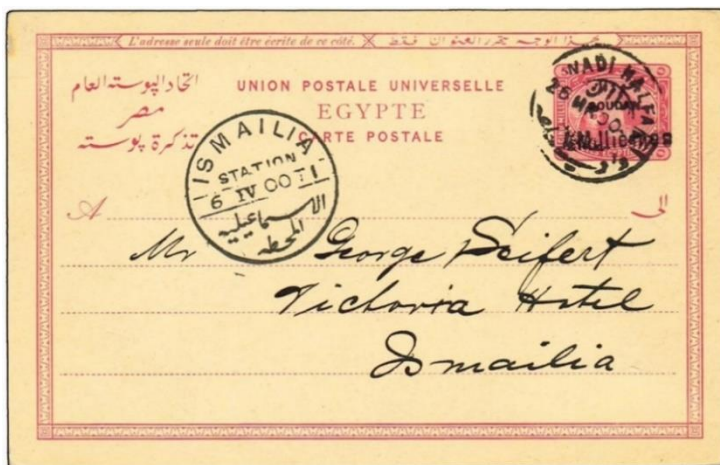 L'adresse seule doit être écrite de ce côté. هذا الوجه محرر العنوان فقط
اتحاد البوسته العام
مصر
تذكرة بوسته
UNION POSTALE UNIVERSELLE
EGYPTE
CARTE POSTALE
WADI HALFA
SOUDAN
ISMAILIA
STATION
6 IV 00 T1
الاسماعيلية
المحطه
A
الى
Mr George Seifert
Victoria Hotel
Ismailia